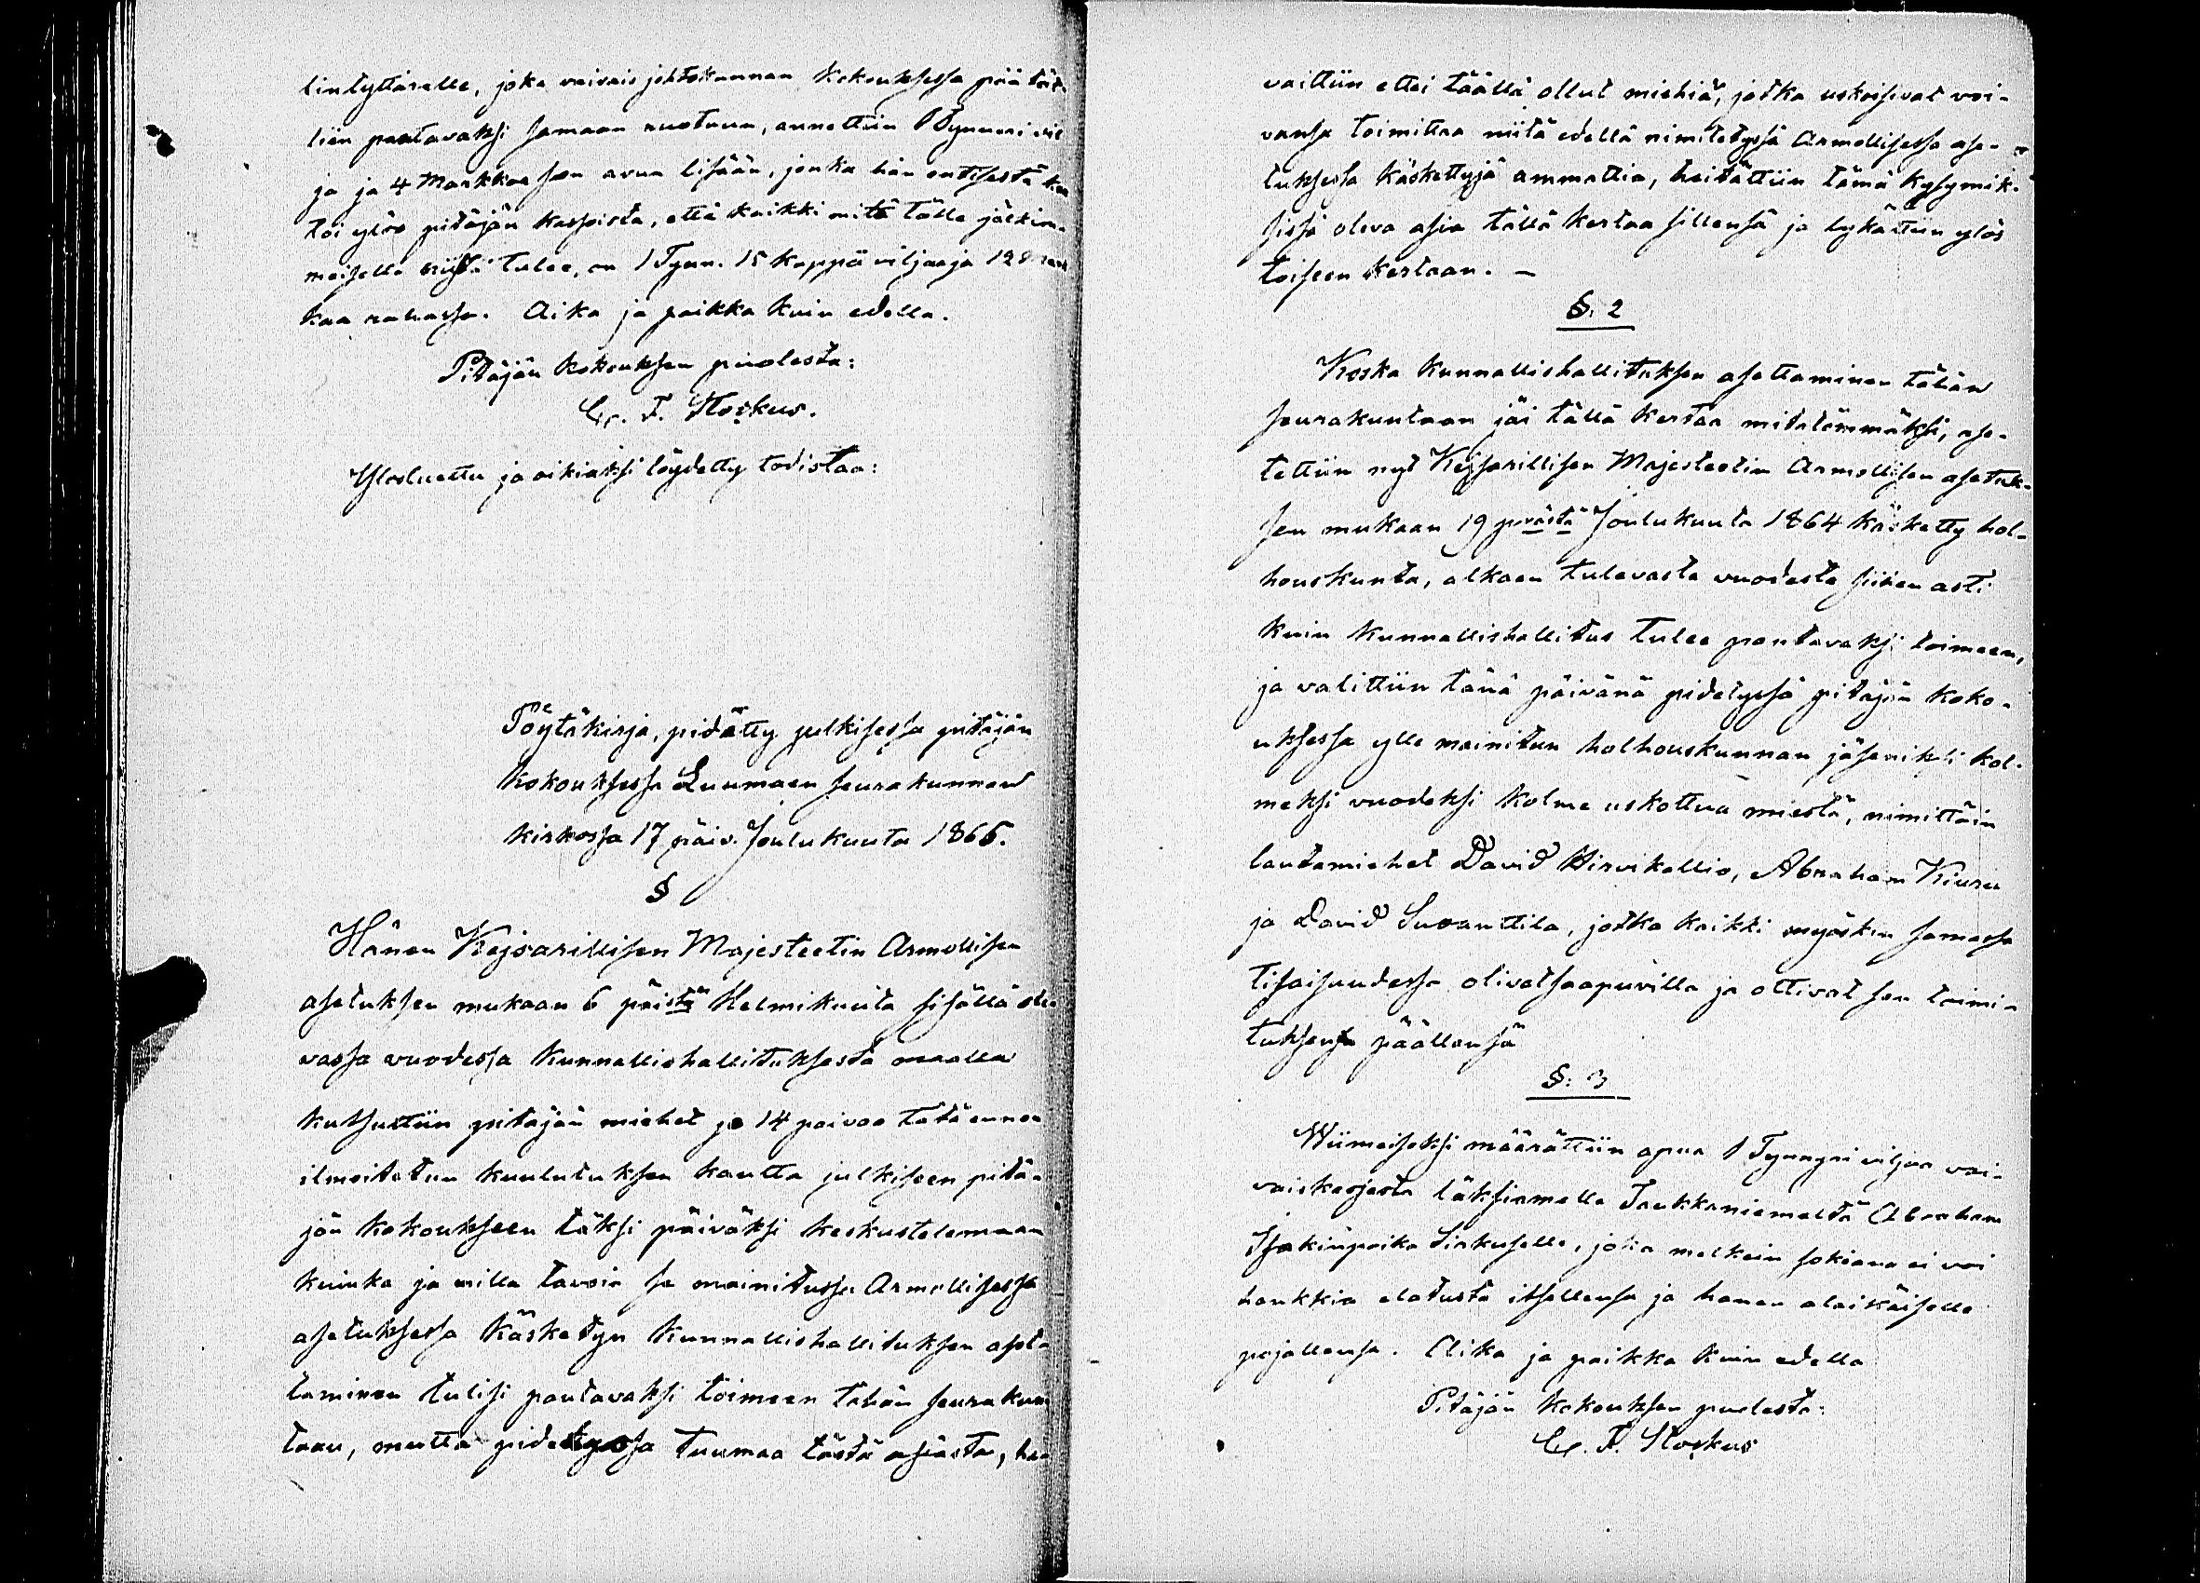 lintyttärelle, joka vaivais johtokunnan kokouksessa päätät-
tiin pantavaksi samaan ruotuun, annettiin 1 Tynnyri vil
ja ja 4 Markkaa sen avun lisään, jonka hän entisestä
toi ylös pitäjän kassoista, että kaikki mitä tälle jälkim-
meiselle niistä tulee, on 1 Tynn. 15 kappa viljaa ja 12
kaa rahassa. Aika ja paikka kuin edellä.
Pitäjän kokouksen puolesta:
C. F. Stoskus.
Ylösluettu ja oikiaksi löydetty todistaa:
Pöytäkirja, pidätty julkisessa pitäjän
kokouksessa Luumäen seurakunnan
kirkossa 17 päiv. Joulukuuta 1865.
§
Hänen Kejsarillisen Majesteetin Armollisen
asetuksen mukaan 6 päistä Helmikuuta sisällä ole
vassa vuodessa kunnallishallituksesta maalla
kutsuttiin pitäjän miehet jo 14 päivää tätä ennen
ilmoitetun kuulutuksen kautta julkiseen pitä-
jän kokoukseen täksi päiväksi keskustelemaan
kuinka ja millä tavoin se mainitussa Armollisessa
asetuksessa käsketyn kunnallishallituksen aset-
taminen tulisi pantavaksi toimeen tähän seurakun
taan, mutta pidetyssä tuumaa tästä asiasta, ha-
vaittiin ettei täällä ollut miehiä, jotka uskoisivat voi-
vansa toimittaa niitä edellä nimitetyssä Armollisessa ase-
tuksessa käskettyjä ammattia, heitättiin tämä kysymik-
sissä oleva asia tällä kertaa sillensä ja lykättiin ylös
toiseen kertaan. -
§. 2
Koska kunnallishallituksen asettaminen tähän
seurakuntaan jäi tällä kertaa mitätömmäksi, ase-
tettiin nyt Kejsarillisen Majesteetin Armollisen asetuk-
sen mukaan 19 pvästä Joulukuuta 1864 käsketty hol-
houskunta, alkaen tulevasta vuodesta siihen asti
kuin kunnallishallitus tulee pantavaksi toimeen,
ja valittiin tänä päivänä pidetyssä pitäjän koko-
uksessa ylle mainitun holhouskunnan jäseniksi kol-
meksi vuodeksi kolme uskottua miestä, nimittäin
lautamiehet David Hirvikallio, Abraham Kiuru
ja David Suvanttila, jotka kaikki myöskin samassa
tilaisuudessa olivat saapuvilla ja ottivat sen toimi-
tuksensa päällensä
§. 3
Wiimeiseksi määrättiin apua 1 Tynnyri viljaa vai-
vaiskassasta läksiamelle Taukkaniemeltä Abraham
Isakinpoika Sirkuselle, joka melkein sokiana ei voi
hankkia elatusta itsellensä ja hänen alaikäiselle
pojallensa. Aika ja paikka kuin edellä
Pitäjän kokouksen puolesta:
C. F. Stoskus